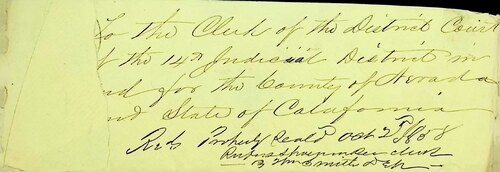 To the Clerk of the District Court
of the 14th Judicial District in
nd for the County of Nevada
nd State of California
Recd Properly Seald Oct 2d 1858
Rufus Shoemaker Clerk
By Wm Smith Dep